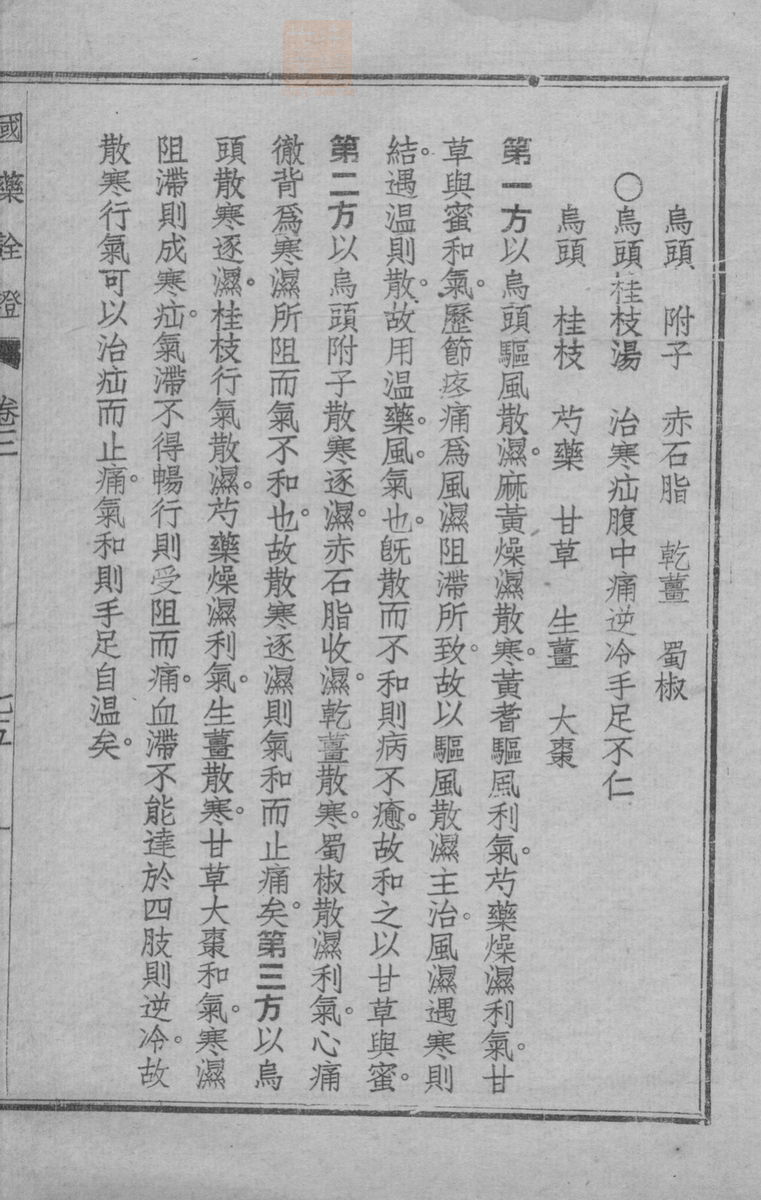 烏頭　附子　赤石脂　乾薑　蜀椒
〇烏頭桂枝湯　治寒疝腹中痛逆冷手足不仁
烏頭　桂枝　芍藥　甘草　生薑　大棗
第一方以烏頭驅風散濕。麻黃燥濕散寒。黃耆驅風利氣。芍藥燥濕利氣。甘
草與蜜和氣。歷節疼痛爲風濕阻滯所致。故以驅風散濕主治。風濕遇寒則
結。遇溫則散。故用溫藥。風。氣也。旣散而不和則病不癒。故和之以甘草與蜜。
第二方以烏頭附子散寒逐濕。赤石脂收濕。乾薑散寒。蜀椒散濕利氣。心痛
徹背爲寒濕所阻而氣不和也。故散寒逐濕則氣和而止痛矣。第三方以烏
頭散寒逐濕。桂枝行氣散濕。芍藥燥濕利氣。生薑散寒。甘草大棗和氣。寒濕
阻滯則成寒疝。氣滯不得暢行則受阻而痛。血滯不能達於四肢則逆冷。故
散寒行氣可以治疝而止痛。氣和則手足自溫矣。
國藥詮證　卷三　七五